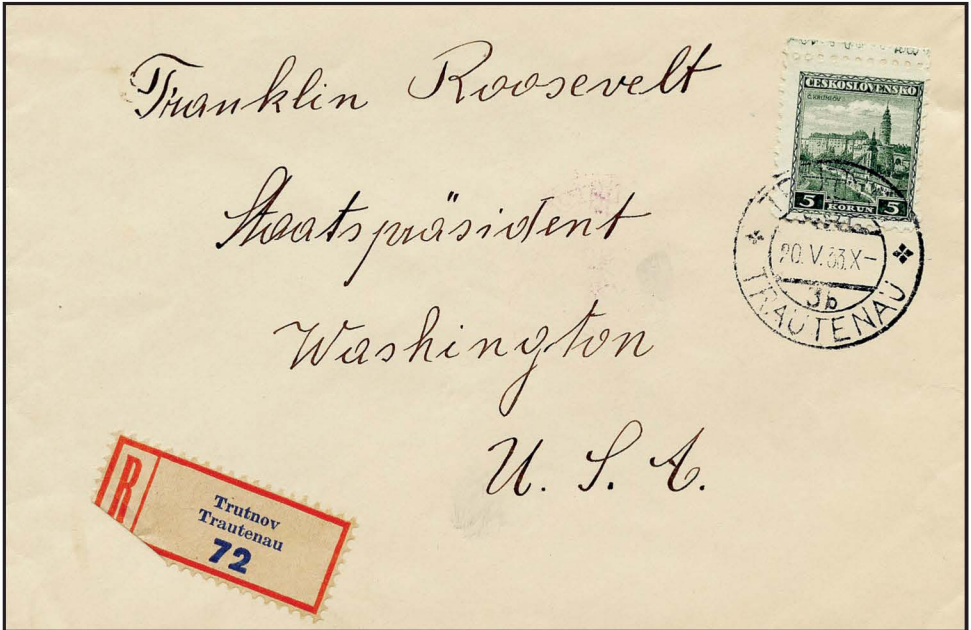 Franklin Roosevelt
Staatspräsident
Washington
U. S. A.
ČESKOSLOVENSKO
5 KORUN 5
20.V.33.X-
3b
TRAUTENAU
R
Trutnov
Trautenau
72